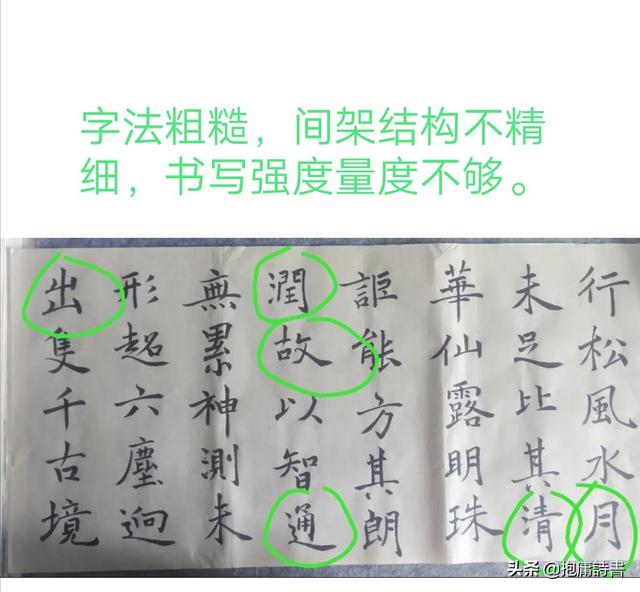 字法粗糙，间架结构不精
细，书写强度量度不够。
行松風水月
未足比其清
華仙露明珠
詎能方其朗
潤故以智通
無累神測未
形超六塵迥
出隻千古境
头条 @抱庸詩書